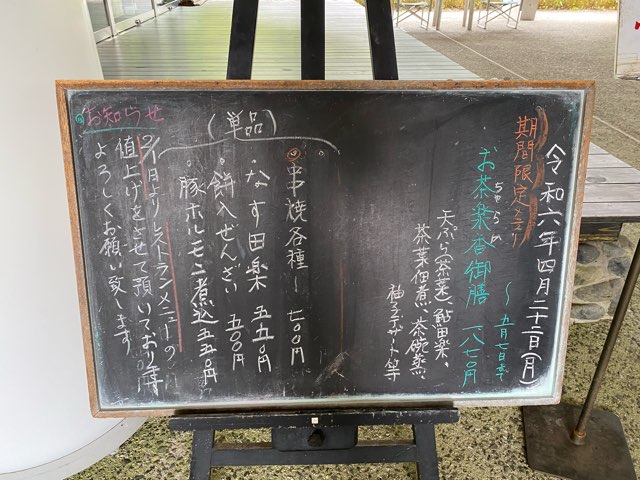 令和六年四月二十二日(月)
期間限定メニュー
お茶楽香御膳
ちゃらか
一八七〇円
～五月七日まで
天ぷら(茶葉)、鮎田楽、
茶葉佃煮、茶碗蒸、
柚子デザート等
(単品)
串焼各種〜七〇〇円
・なす田楽 五五〇円
・餅入ぜんざい 五〇〇円
・豚ホルモン煮込 五五〇円
お知らせ
2/1日よりレストランメニューの
値上げをさせて頂いております。
よろしくお願い致します。